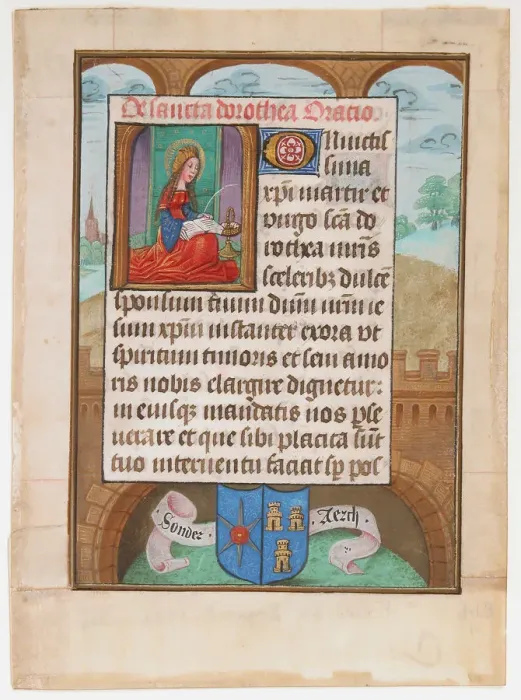 De sancta dorothea Oracio
O Inuictis
sima
xp̄i martir et
uirgo sc̄a do
rothea nr̄is
sceleribꝫ dulcē
sponsum tuum dn̄m nr̄m ie
sum xp̄m instanter exora vt
spiritum timoris et sc̄m amo
ris nobis elargire dignetur:
in eiusqꝫ mandatis nos ꝑse
uerare et que sibi placita sūt
tuo interuentu faciat sꝑ pos-
·Sonder·
·Aerch·